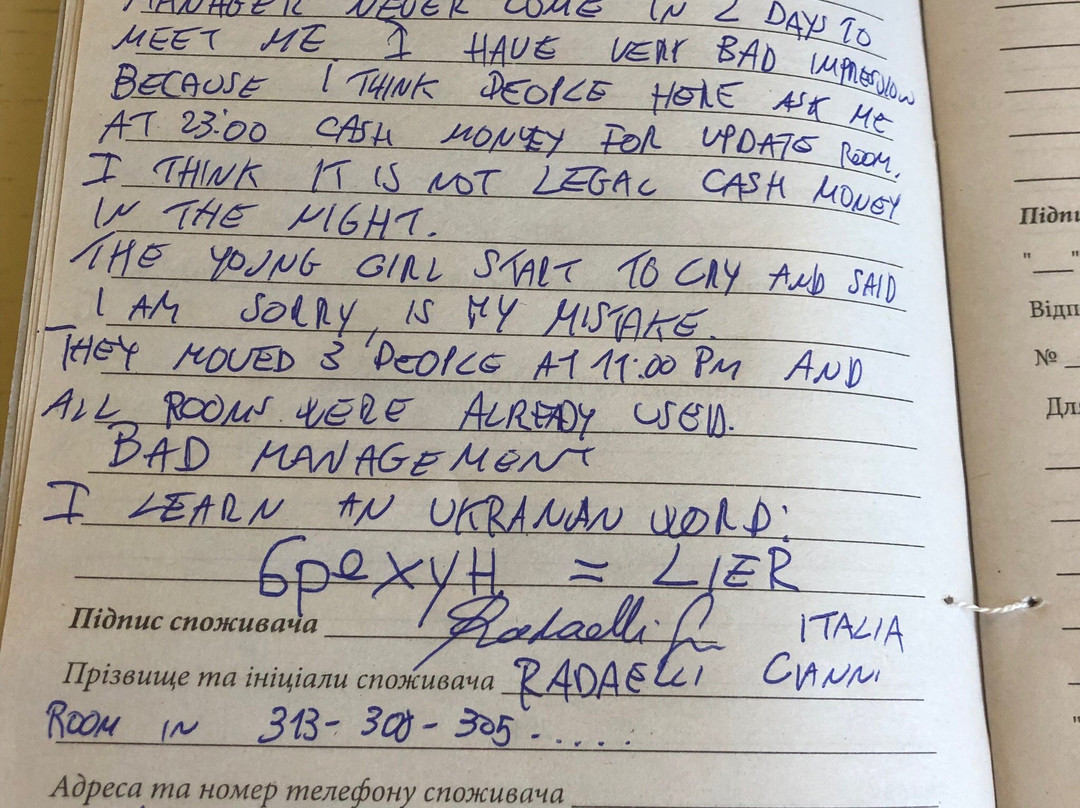 MANAGER NEVER COME IN 2 DAYS TO
MEET ME I HAVE VERY BAD IMPRESSION
BECAUSE I THINK PEOPLE HERE ASK ME
AT 23:00 CASH MONEY FOR UPDATE ROOM.
I THINK IT IS NOT LEGAL CASH MONEY
IN THE NIGHT.
THE YOUNG GIRL START TO CRY AND SAID
I AM SORRY, IS MY MISTAKE.
THEY MOVED 3 PEOPLE AT 11:00 PM AND
ALL ROOMS WERE ALREADY USED.
BAD MANAGEMENT
I LEARN AN UKRANAN WORD:
брехун = LIER
Підпис споживача Radaelli G ITALIA
Прізвище та ініціали споживача RADAELLI GIANNI
ROOM IN 313-308-305-.....
Адреса та номер телефону споживача
Підпи
"___"
Відп
№
Для